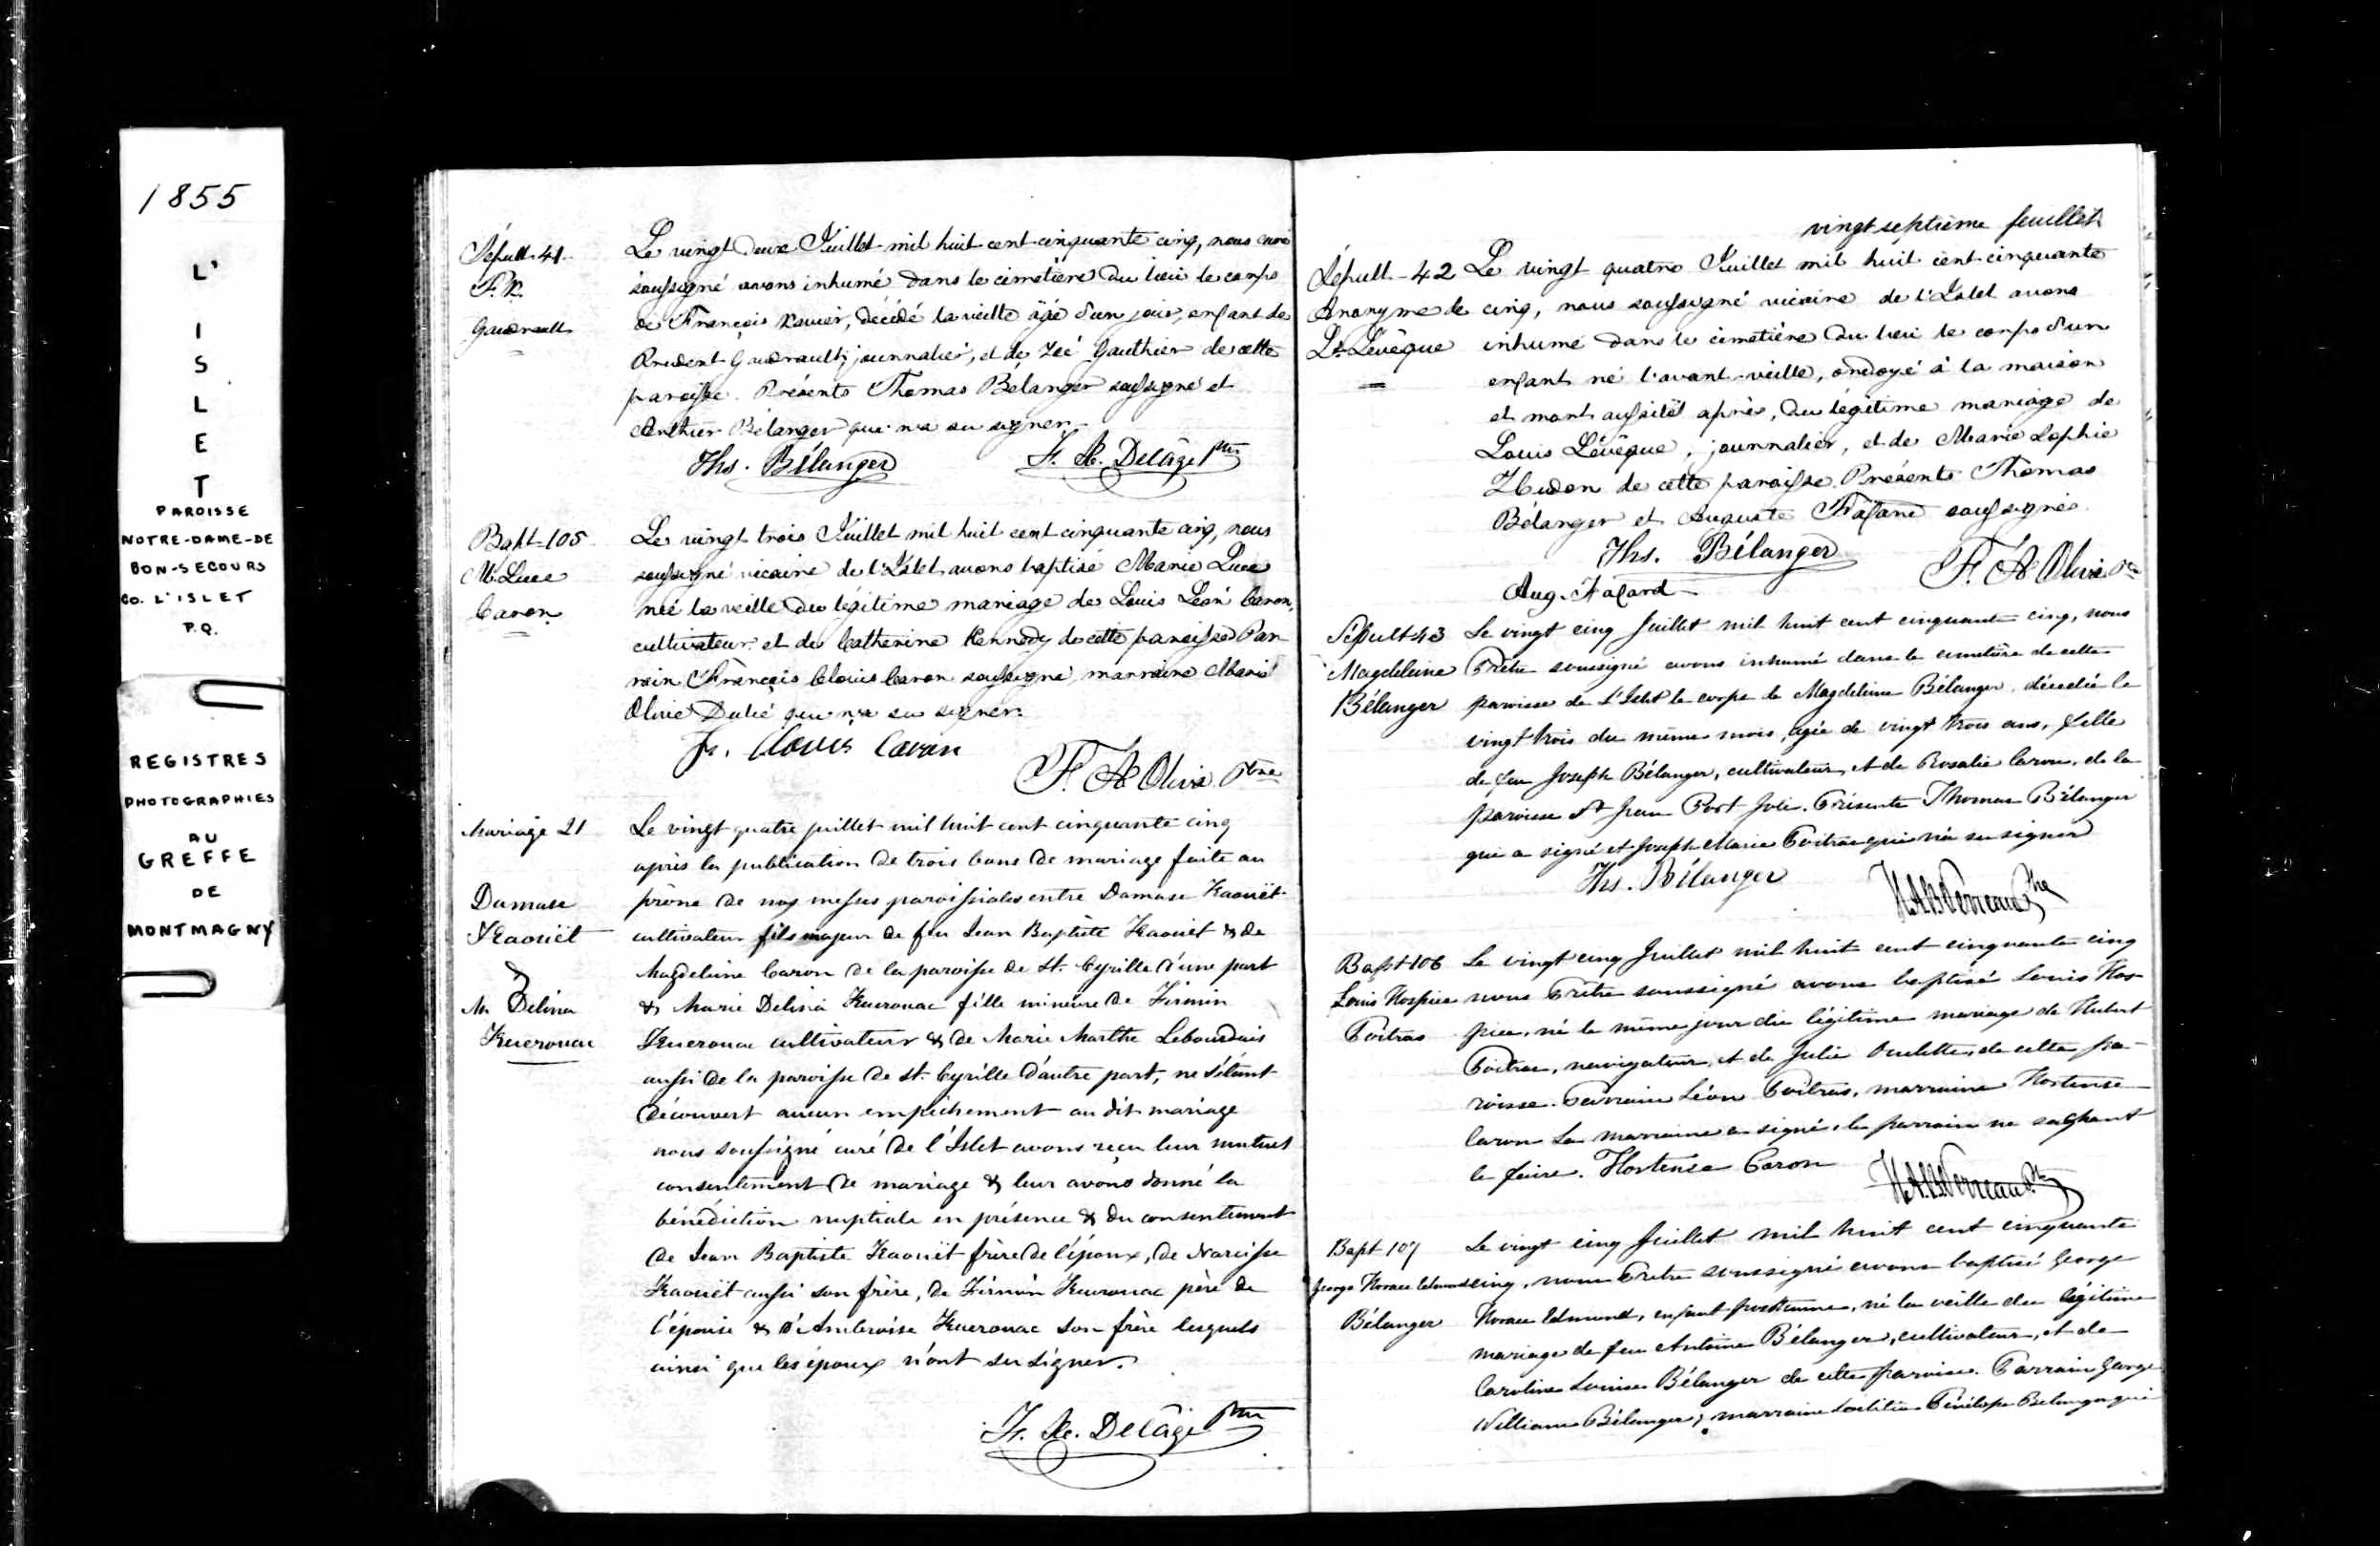 1855
L'
I
S
L
E
T
PAROISSE
NOTRE-DAME-DE
BON-SECOURS
CO. L'ISLET
P.Q.
REGISTRES
PHOTOGRAPHIES
AU
GREFFE
DE
MONTMAGNY
Sépult. 41.
F. X.
Gaudreault
Le vingt deux Juillet mil huit cent cinquante cinq, nous curé
soussigné avons inhumé dans le cimetière du lieu le corps
de François Xavier, décédé la veille âgé d'un jour, enfant de
Prudent Gaudreault, journalier, et de Zoé Gauthier de cette
paroisse. Présents Thomas Bélanger soussigné et
Anthier Bélanger qui n'a su signer.
Ths. Bélanger F. X. Delâge Ptre
Bapt-105
M. Luce
Caron
Le vingt trois Juillet mil huit cent cinquante cinq, nous
soussigné vicaire de l'Islet avons baptisé Marie Luce
née la veille du légitime mariage de Louis Léon Caron,
cultivateur et de Catherine Kennedy de cette paroisse Par-
rain François Clovis Caron soussigné, marraine Marie
Olive Dubé qui n'a su signer.
Fr. Clovis Caron
F. A. Oliva Ptre
Mariage 21
Damase
Kaouët
&
M. Delina
Kuerouac
Le vingt quatre juillet mil huit cent cinquante cinq
après la publication de trois bans de mariage faite au
prône de nos messes paroissiales entre Damase Kaouët
cultivateur fils majeur de feu Jean Baptiste Kaouët & de
Magdeleine Caron de la paroisse de St. Cyrille d'une part
& Marie Delina Kuerouac fille mineure de Firmin
Kuerouac cultivateur & de Marie Marthe Lebourdais
aussi de la paroisse de St. Cyrille d'autre part, ne s'étant
découvert aucun empêchement au dit mariage
nous soussigné curé de l'Islet avons reçu leur mutuel
consentement de mariage & leur avons donné la
bénédiction nuptiale en présence & du consentement
de Jean Baptiste Kaouët frère de l'époux, de Narcisse
Kaouët aussi son frère, de Firmin Kuerouac père de
l'épouse & d'Ambroise Kuerouac son frère lesquels
ainsi que les époux n'ont su signer.
F. X. Delâge Ptre
vingt septième feuillet
Sépult-42
Anonyme de
Ls Lévêque
Le vingt quatre Juillet mil huit cent cinquante
cinq, nous soussigné vicaire de l'Islet avons
inhumé dans le cimetière du lieu le corps d'un
enfant né l'avant-veille, ondoyé à la maison
et mort aussitôt après, du légitime mariage de
Louis Lévêque, journalier, et de Marie Sophie
Hudon de cette paroisse. Présents Thomas
Bélanger et Auguste Fafard soussignés.
Ths. Bélanger
Aug. Fafard F. A. Oliva Ptre
Sépult 43
Magdeleine
Bélanger
Le vingt cinq Juillet mil huit cent cinquante cinq, nous
Prêtre soussigné avons inhumé dans le cimetière de cette
paroisse de L'Islet le corps de Magdeleine Bélanger, décédée le
vingt trois du même mois, âgée de vingt trois ans, fille
de feu Joseph Bélanger, cultivateur, et de Rosalie Caron, de la
paroisse St Jean Port Joli. Présents Thomas Bélanger
qui a signé et Joseph Marie Poitras qui n'a su signer
Ths. Bélanger
H.A.B. Verreau Ptre
Bapt 106
Louis Hospice
Poitras
Le vingt cinq Juillet mil huit cent cinquante cinq
nous Prêtre soussigné avons baptisé Louis Hos-
pice, né le même jour du légitime mariage de Hubert
Poitras, navigateur, et de Julie Ouellette, de cette pa-
roisse. Parrain Léon Poitras, marraine Hortense
Caron La marraine a signé, le parrain ne sachant
le faire. Hortense Caron
H.A.B. Verreau Ptre
Bapt 107
George Horace Edmund
Bélanger
Le vingt cinq Juillet mil huit cent cinquante
cinq, nous Prêtre soussigné avons baptisé George
Horace Edmund, enfant posthume, né la veille du légitime
mariage de feu Antoine Bélanger, cultivateur, et de
Caroline Louise Bélanger de cette paroisse. Parrain George
William Bélanger, marraine Pénélope Bélanger qui